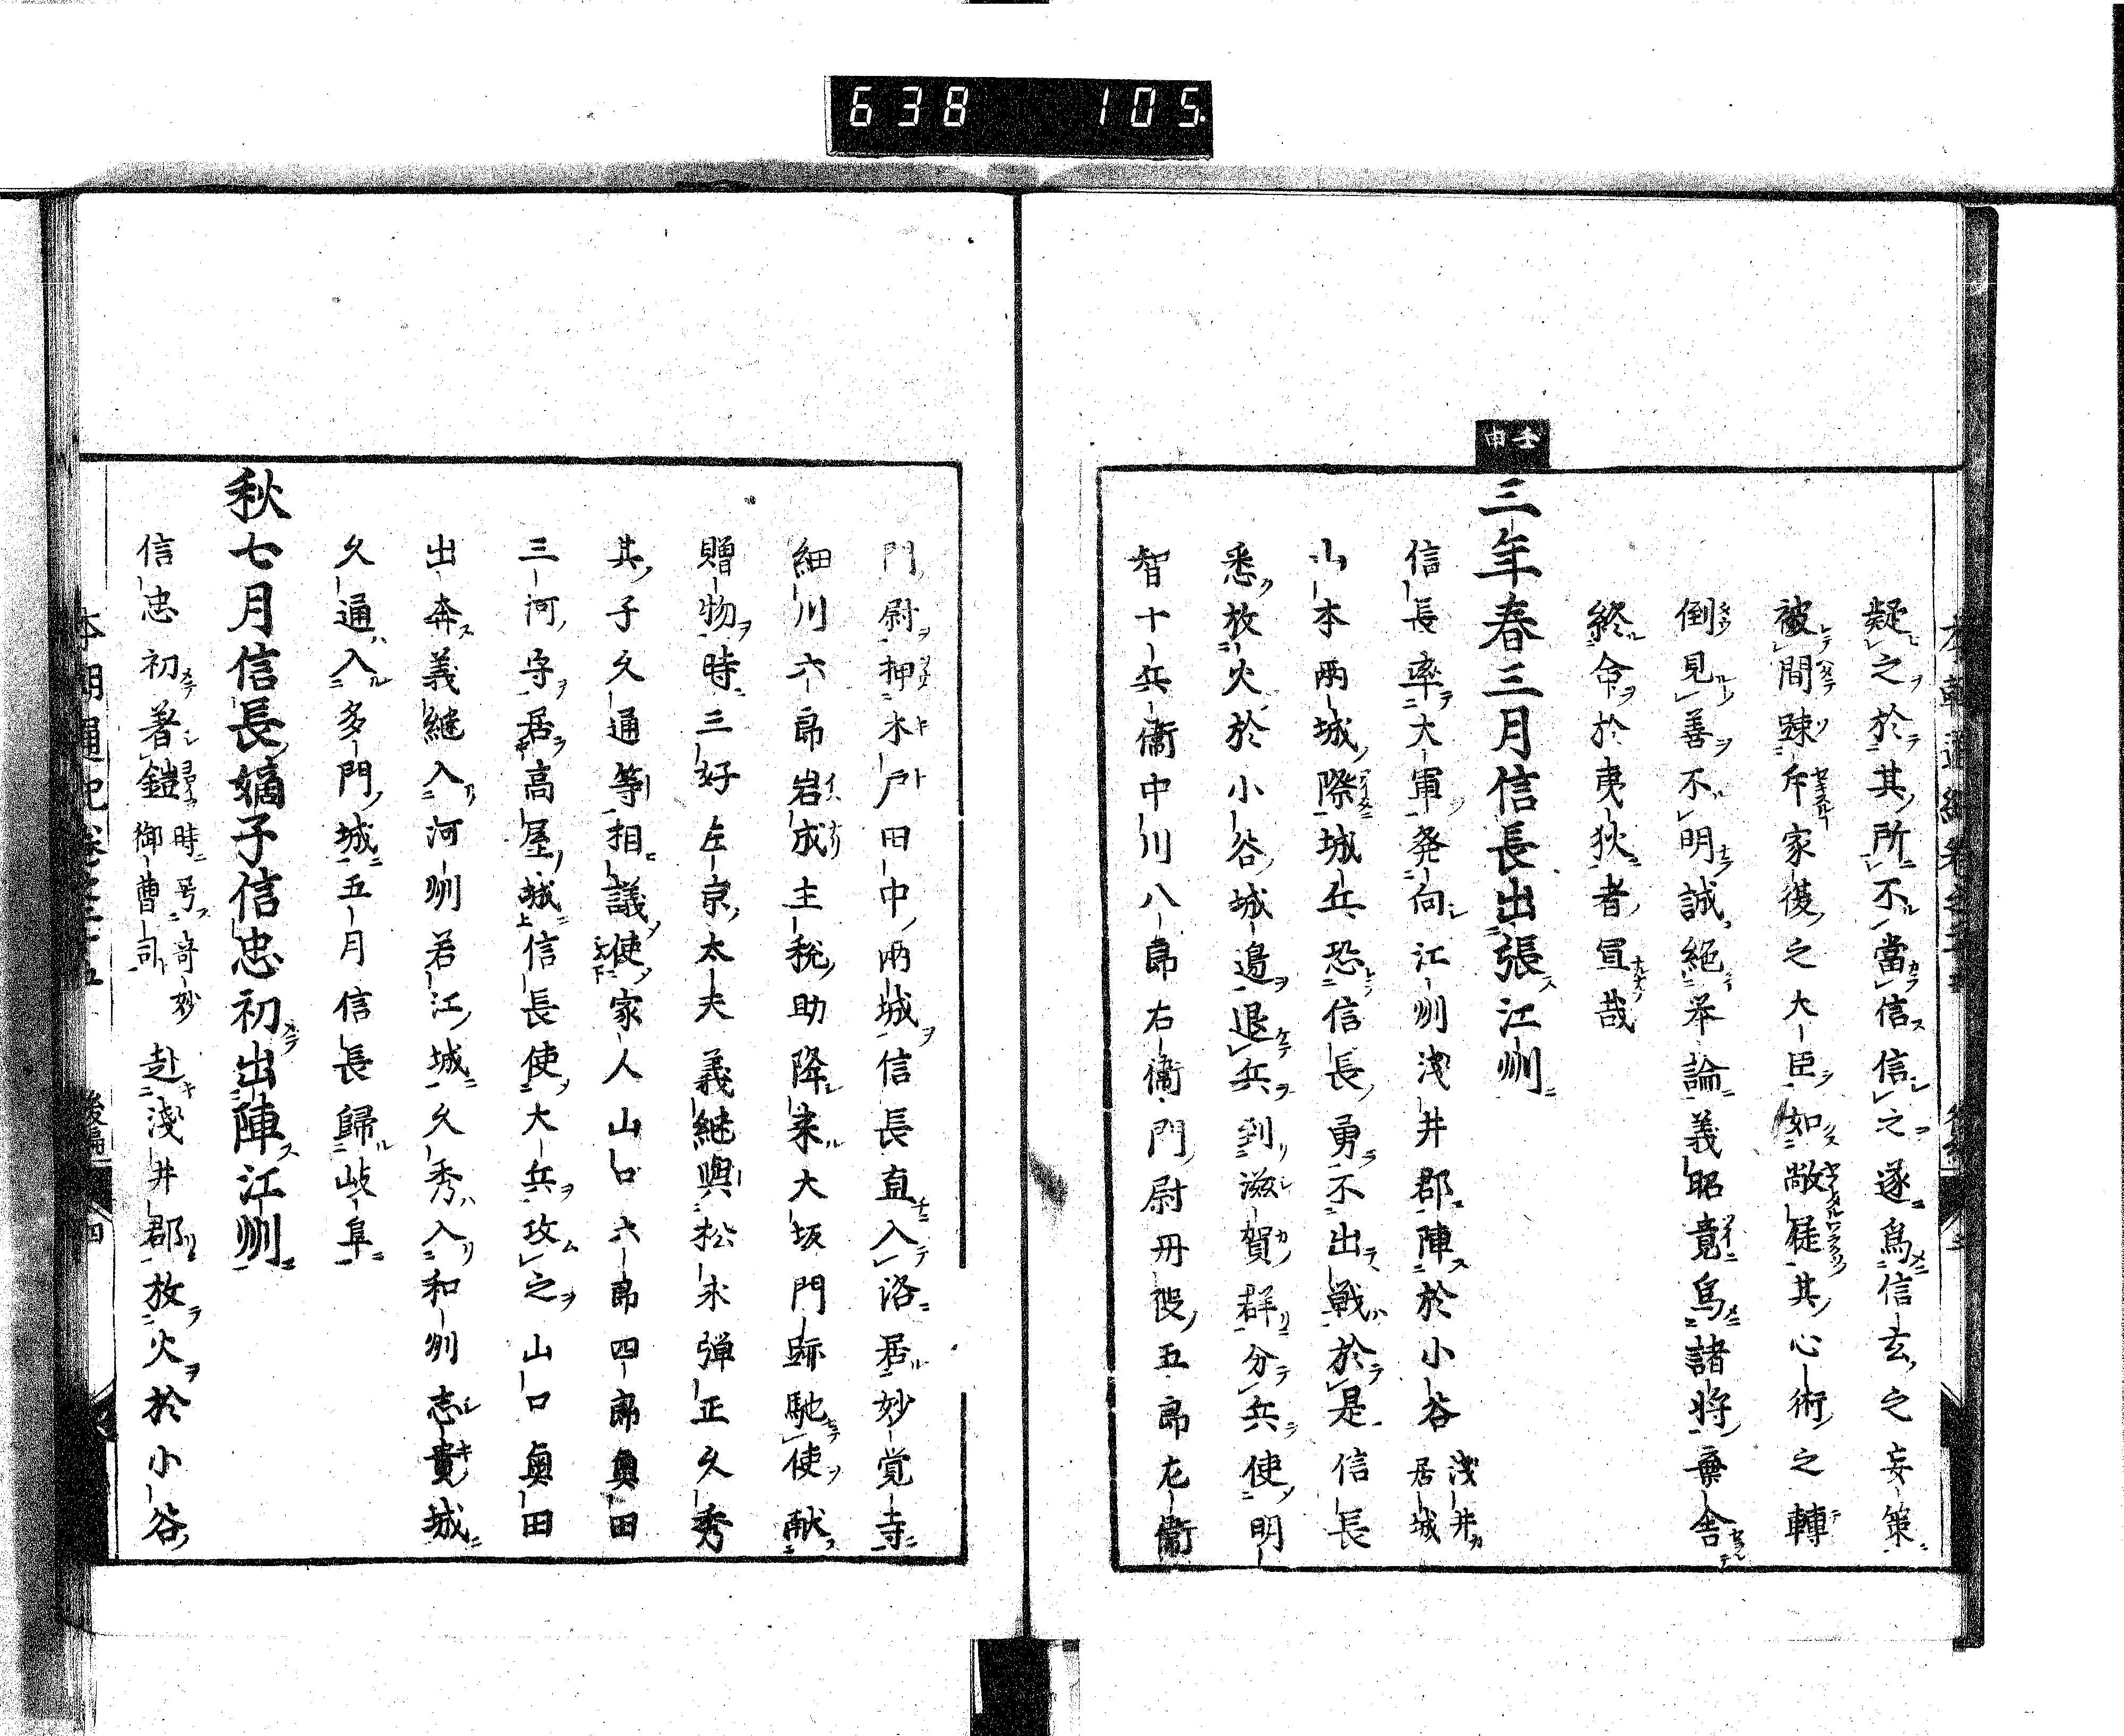 638 105
疑之於其所不當信信之遂爲信玄之妄策
被間踈斥家後之大臣如敵徒其心術之轉
倒見善不明誠絕爲論義昭竟爲諸將棄舍
終命於夷狄者冝哉
壬申
三年春三月信長出張江州
信長率大軍発向江州浅井郡陣於小谷浅井居城
山本兩城際城兵恐信長勇不出戦於是信長
悉放火於小谷城邉退兵到滋賀群分兵使明
智十兵衞中川八郎右衞門尉丹後五郎左衞
門尉押木戸田中兩城信長直入洛居妙覚寺
細川六郎岩成主税助降来大坂門跡馳使献
贈物時三好左京太夫義継與松永弾正久秀
其子久通等相議使家人山口六郎四郎奥田
三河守居高屋城信長使大兵攻之山口奥田
出奔義継入河州若江城久秀入和州志貴城
久通入多門城五月信長歸岐阜
秋七月信長嫡子信忠初出陣江州
信忠初著鎧時号奇妙御曹司赴淺井郡放火於小谷
本朝通紀卷之二十五 後編 四